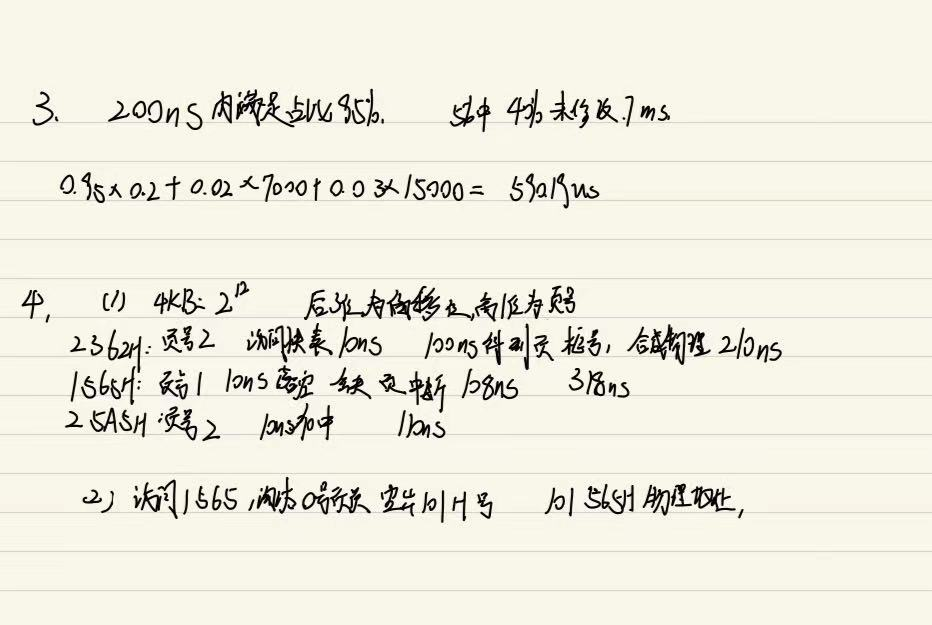 3. 200ns 内满足占比95%. 5%中 4%未修改.7ms.
0.95×0.2+0.02×7000+0.03×15000= 590.19us
4. (1) 4KB: 2^12 后3位为偏移量,高1位为页号
2362H: 页号2 访问快表10ns 100ns得到页框号, 合成物理 210ns
1565H: 页号1 10ns落空 缺页中断 108ns 318ns
25A5H:页号2 10ns命中 110ns
(2) 访问1565,淘汰0号页 101H号 101565H 物理地址,